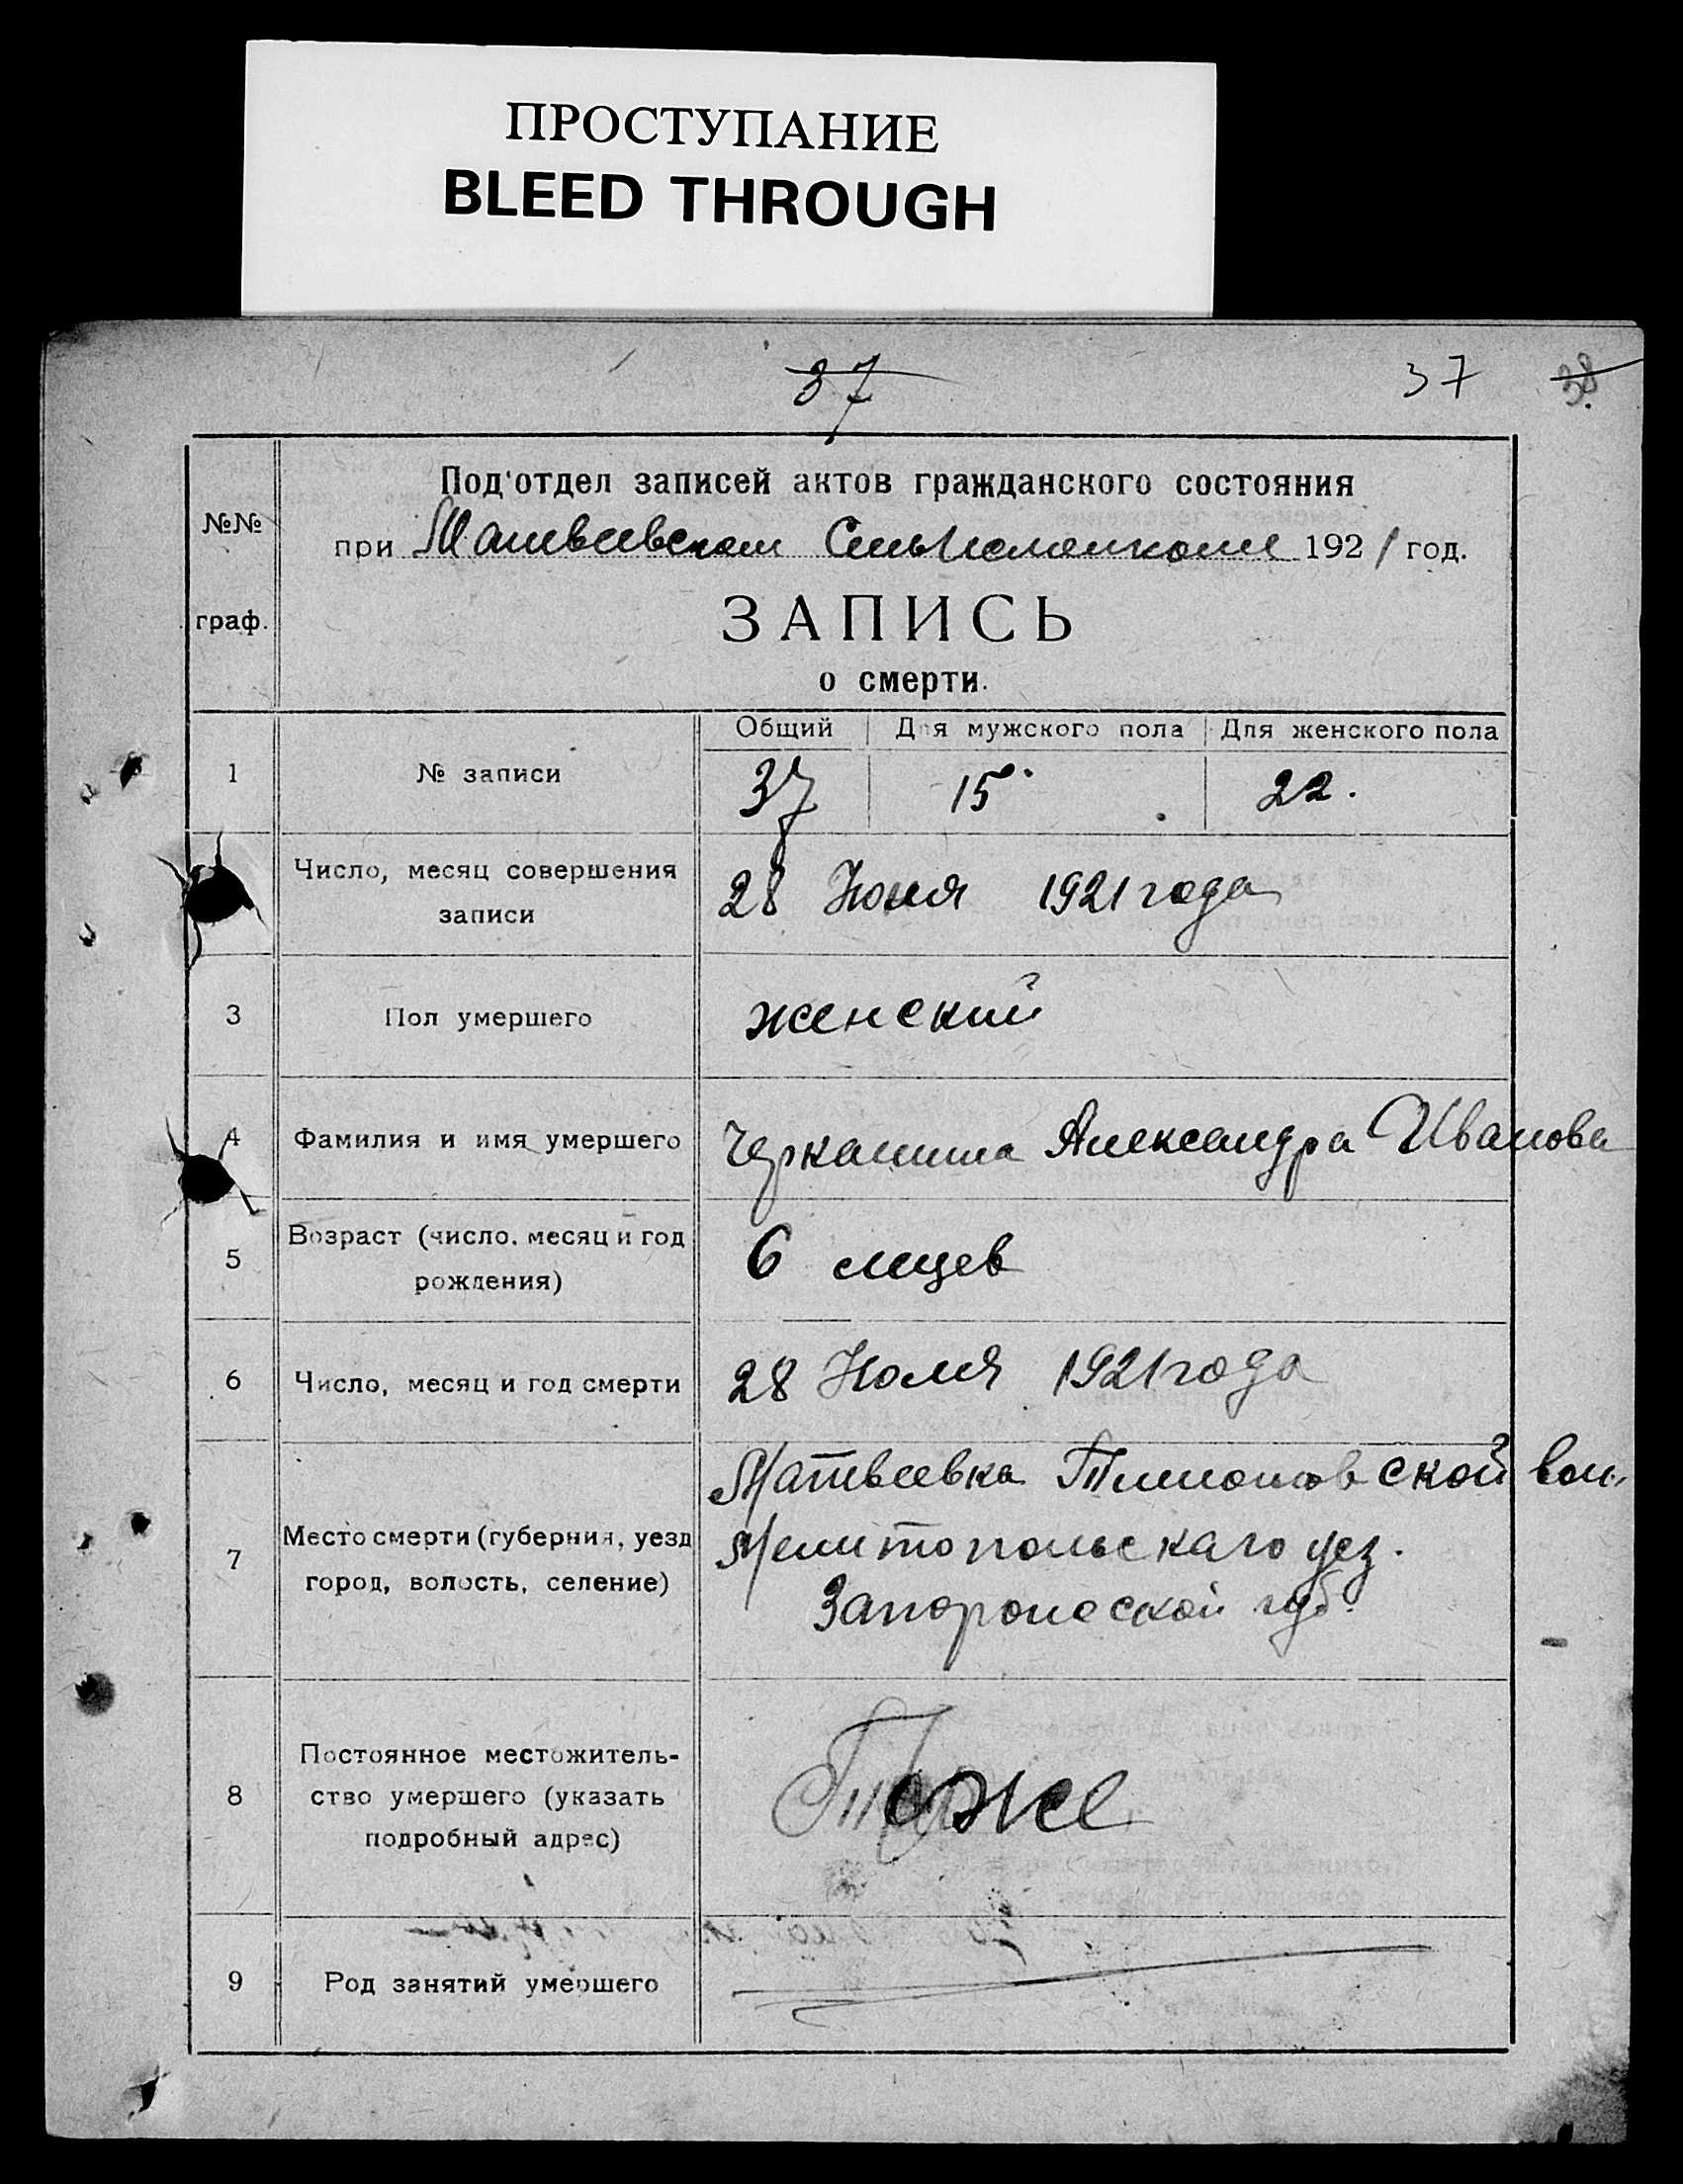 ПРОСТУПАНИЕ
BLEED THROUGH
37 37 38.
Под'отдел записей актов гражданского состояния
№№
при Матвеевском 1921 год.
граф.
ЗАПИСЬ
о смерти.
Общий Для мужского пола Для женского пола
1 № записи 37 15. 22.
Число, месяц совершения
записи
28 Июня 1921 года
3 Пол умершего женский
4 Фамилия и имя умершего Александра Иванова
Возраст (число, месяц и год
5 рождения)
6 мцев
6 Число, месяц и год смерти 28 1921 года
Матвеевка ской вол.
Место смерти (губерния, уезд
7 город, волость, селение)
Мелитопольскаго уез.
Запорожской губ.
Постоянное местожитель-
8 ство умершего (указать
подробный адрес)
Тоже
9 Род занятий умершего